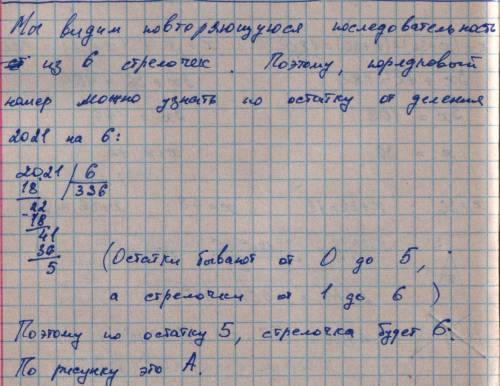 Мы видим повторяющуюся последовательность
из 6 стрелочек. Поэтому, порядковый
номер можно узнать по остатку от деления
2021 на 6:
2021 | 6
18 | 336
22
-18
41
36
5
(Остатки бывают от 0 до 5,
а стрелочки от 1 до 6)
Поэтому по остатку 5, стрелочка будет 6.
По рисунку это А.